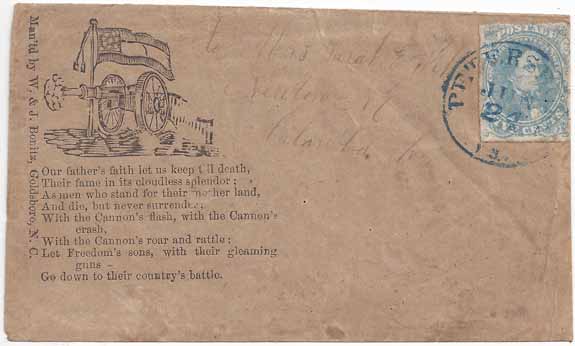 Man'td by W. & J. Bonitz, Goldsboro, N. C.
Our father's faith let us keep till death,
Their fame in its cloudless splendor;
As men who stand for their mother land,
And die, but never surrender.
With the Cannon's flash, with the Cannon's
crash,
With the Cannon's roar and rattle;
Let Freedom's sons, with their gleaming
guns –
Go down to their country's battle.
to Mrs Sarah
POSTAGE
PETERS
24